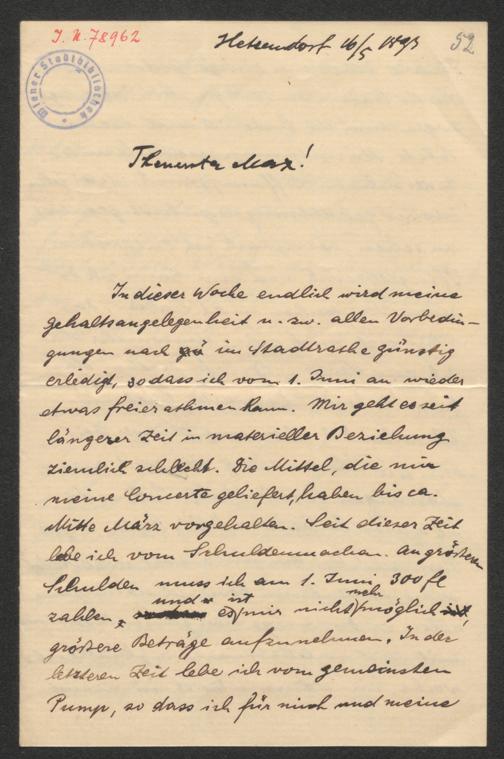 I. N. 78962
52
Wiener Stadtbibliothek
Hetzendorf 16/5 1893
Theuerster Max!
In dieser Woche endlich wird meine
gehaltsangelegenheit u. zw. allen Vorbedin-
gungen nach im Stadtrathe günstig
erledigt, sodass ich vom 1. Juni an wieder
etwas freier athmen kann. Mir geht es seit
längerer Zeit in materieller Beziehung
ziemlich schlecht. Die Mittel, die mir
meine Concerte geliefert, haben bis ca.
Mitte März vorgehalten. Seit dieser Zeit
lebe ich vom Schuldenmachen. An grösseren
Schulden muss ich am 1. Juni 300 fl
zahlen, und es ist mir nicht mehr möglich,
grössere Beträge aufzunehmen. In der
letzteren Zeit lebe ich vom gemeinsten
Pump, so dass ich für mich und meine